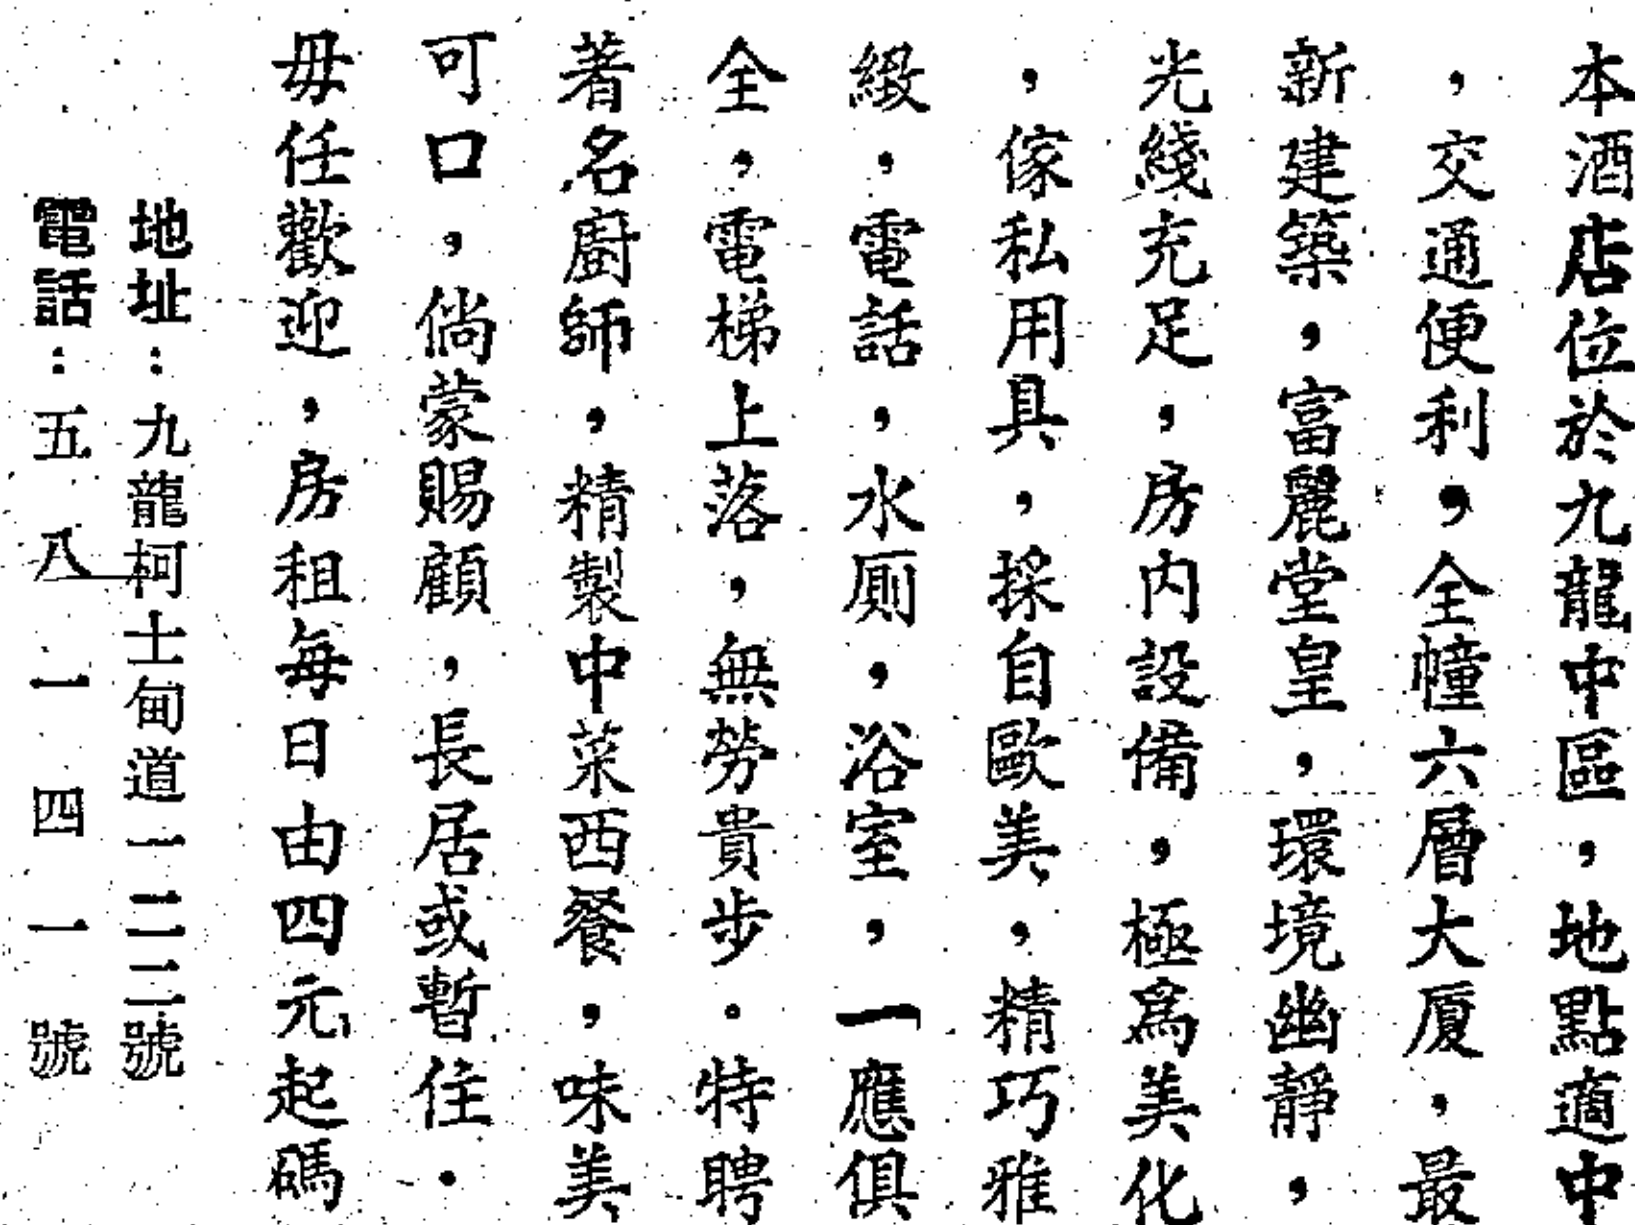 本酒店位於九龍中區，地點適中
，交通便利，全幢六層大厦，最
新建築，富麗堂皇，環境幽靜，
光綫充足，房内設備，極爲美化
，傢私用具，採自歐美，精巧雅
緻，電話，水厠，浴室，一應俱
全，電梯上落，無勞貴步。特聘
著名廚師，精製中菜西餐，味美
可口，倘蒙賜顧，長居或暫住．
毋任歡迎，房租每日由四元起碼
地址：九龍柯士甸道一二二號
電話：五八一四一號